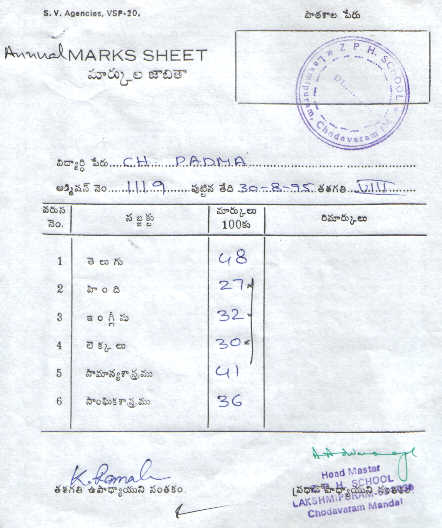 S. V. Agencies, VSP-20.
పాఠశాల పేరు
Annual MARKS SHEET
మార్కుల జాబితా
Z. P. H. SCHOOL
Chodavaram
విద్యార్థి పేరు CH. PADMA
అడ్మిషన్ నెం. 1119 పుట్టిన తేది 30-8-95 తరగతి VIII
వరుస నెం. సబ్జక్టు మార్కులు 100కు రిమార్కులు
1 తెలుగు 48
2 హింది 27
3 ఇంగ్లీషు 32
4 లెక్కలు 30
5 సామాన్యశాస్త్రము 41
6 సాంఘికశాస్త్రము 36
K. Ramah
తరగతి ఉపాధ్యాయుని సంతకం
ప్రధానోపాధ్యాయుని సంతకం
Head Master
Z. P. H. SCHOOL
LAKSHMIPURAM
Chodavaram Mandal